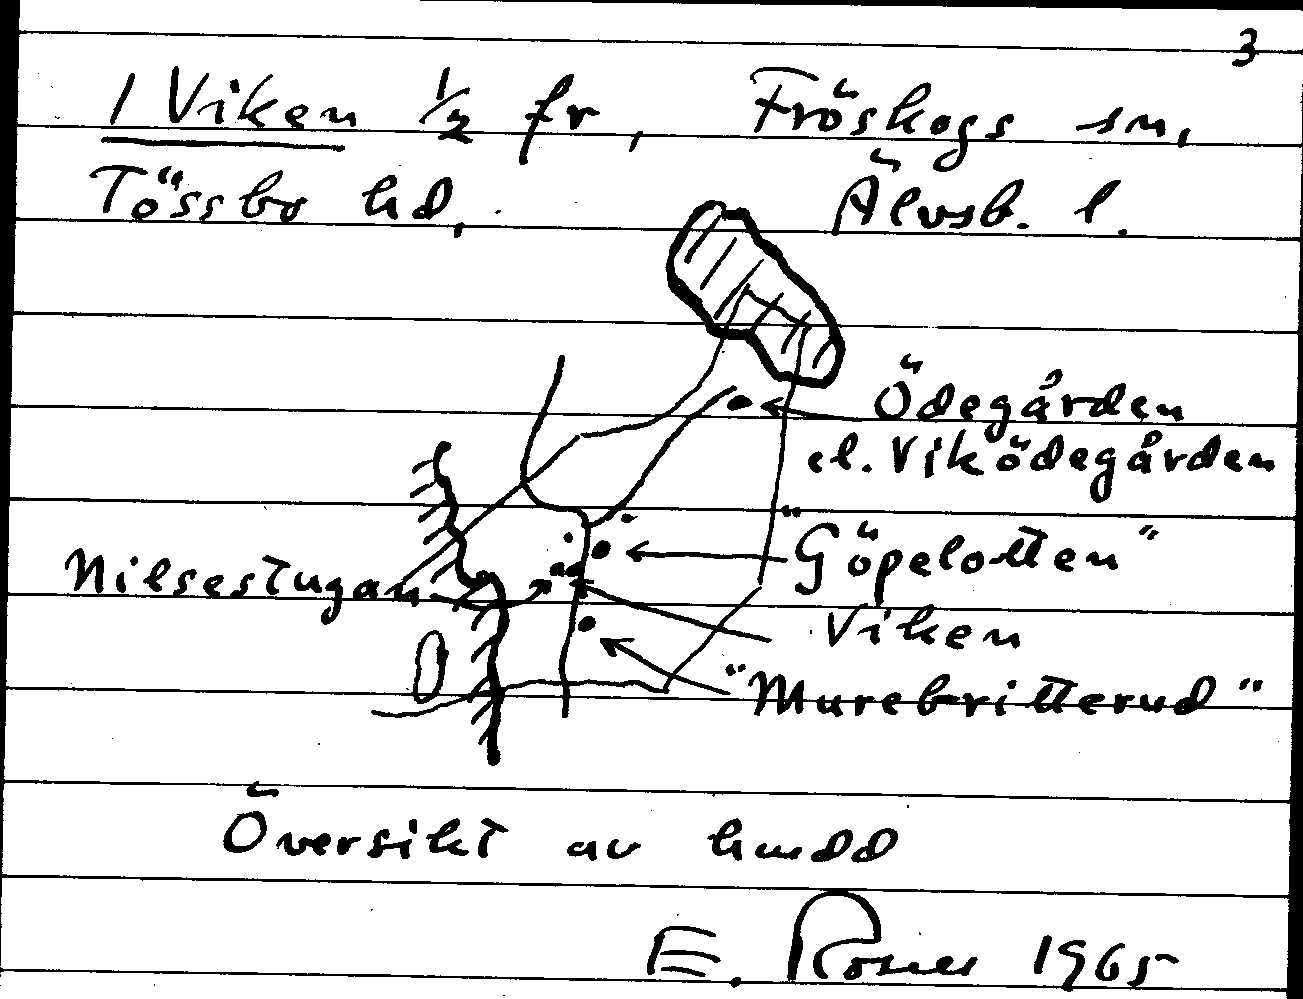 3
1 Viken 1/2 fr, Fröskogs sn,
Tössbo hd, Älvsb. l.
Ödegården
el. Viködegården
"Göpelotten"
Nilsestugan
Viken
"Murebritterud"
Översikt av hmdd
E. Rosner 1965